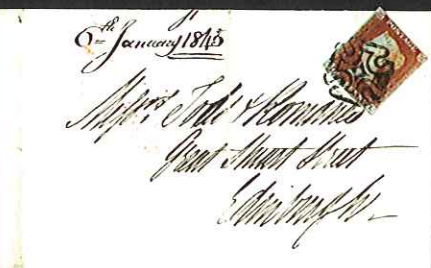 6th January 1845
Messrs Tod & Romanes
Great Stuart Street
Edinburgh
POSTAGE